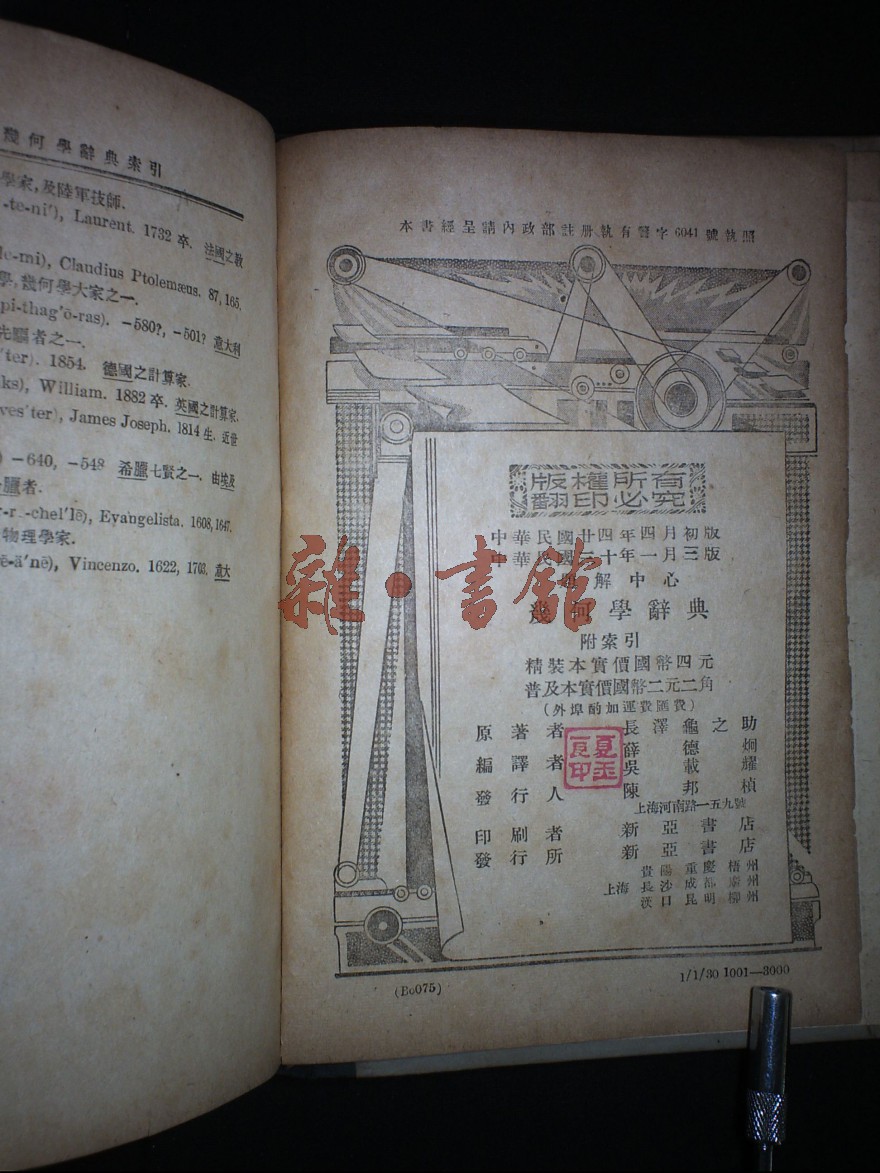 幾何學辭典索引
學家,及陸軍技師.
-te-ni′), Laurent. 1732 卒. 法國之數
le-mi), Claudius Ptolemæus. 87, 165.
學,幾何學大家之一.
pi-thag′ō-ras). −580?, −501? 意大利
先驅者之一.
′ter). 1854. 德國之計算家.
ks), William. 1882 卒. 英國之計算家.
ves′ter), James Joseph. 1814 生. 近世
) −640, −548 希臘七賢之一. 由埃及
臘者.
-chel′lē), Evangelista. 1608, 1647.
物理學家.
ē-ä′nē), Vincenzo. 1622, 1703. 意大
本書經呈請內政部註册執有警字 6041 號執照
版權所有
翻印必究
中華民國廿四年四月初版
中華民國三十年一月三版
題解中心
幾何學辭典
附索引
精裝本實價國幣四元
普及本實價國幣二元二角
(外埠酌加運費匯費)
原著者 長澤龜之助
編譯者 薛德炯
吳載耀
發行人 陳邦楨
上海河南路一五九號
印刷者 新亞書店
發行所 新亞書店
貴陽 重慶 梧州
上海 長沙 成都 州
漢口 昆明 柳州
(Bo075)
1/1/30 1001—3000
雜·書館